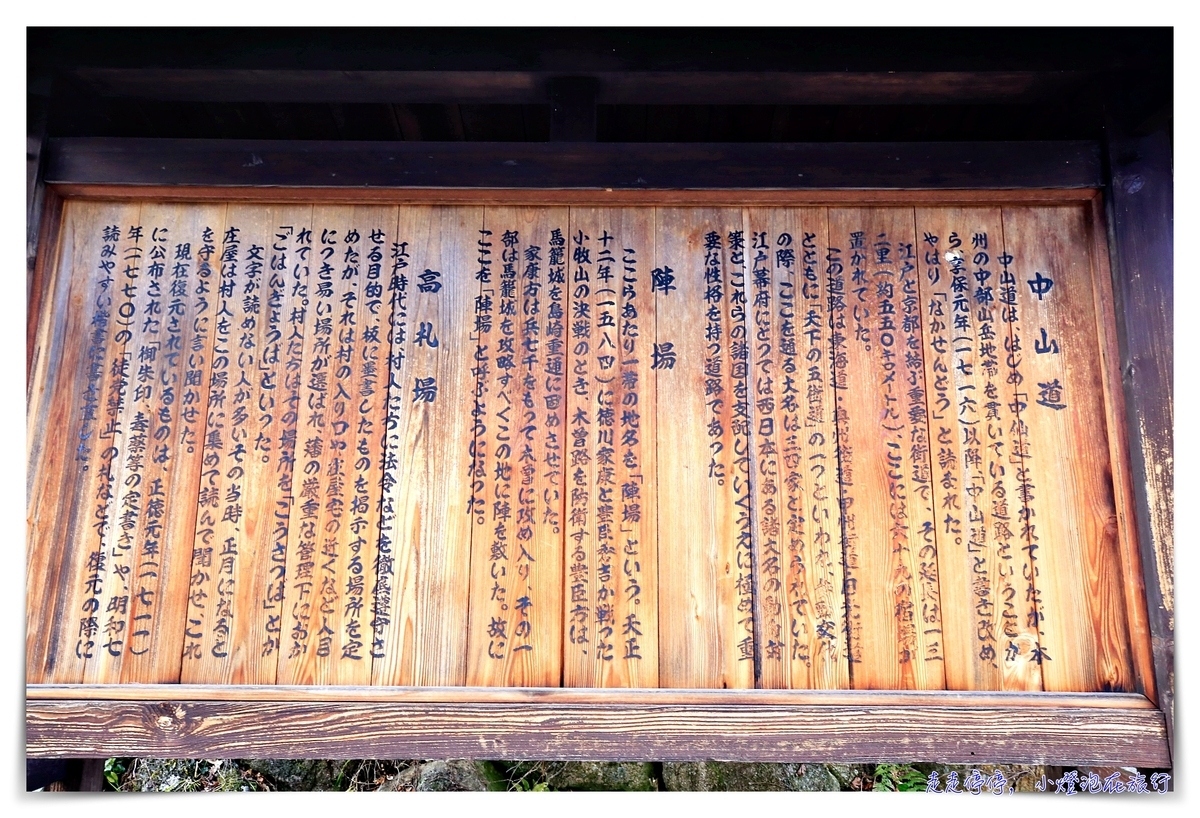 中山道
中山道は、はじめ「中仙道」と書かれていたが、本
州の中部山岳地帯を貫いている道路ということか
ら享保元年(一七一六)以降「中山道」と書き改め、
やはり「なかせんどう」と読まれた。
江戸と京都を結ぶ重要な街道で、その延長は一三
二里(約五五〇キロメートル)、ここには六十九の宿場が
置かれていた。
この道路は東海道・奥州街道・甲州街道・日光街道
とともに「天下の五街道」の一つといわれ、参勤交代
の際、ここを通る大名は三四家と定められていた。
江戸幕府にとっては西日本にある諸大名の動
策とこれらの諸国を支配していくうえに極めて重
要な性格を持つ道路であった。
陣場
ここらあたり一帯の地名を「陣場」という。天正
十二年(一五八四)に徳川家康と豊臣秀吉が戦った
小牧山の決戦のとき、木曽路を防衛する豊臣方は、
馬籠城を島崎重通に固めさせていた。
家康方は兵七千をもって木曽に攻め入り、その一
部は馬籠城を攻略すべくこの地に陣を敷いた。故に
ここを「陣場」と呼ぶようになった。
高札場
江戸時代には村人たちに法令などを徹底遵守さ
せる目的で、板に墨書したものを掲示する場所を定
めたが、それは村の入り口や、庄屋宅の近くなど人目
につき易い場所が選ばれ、藩の厳重な管理下におか
れていた。村人たちはその場所を「こうさつば」とか
「ごはんぎょうば」といった。
文字が読めない人が多いその当時、正月になると
庄屋は村人をこの場所に集めて読んで聞かせ、これ
を守るように言い聞かせた。
現在復元されているものは、正徳元年(一七一一)
に公布された「御朱印、毒薬等の定書き」や、明和七
年(一七七〇)の「徒党禁止」の札などで、復元の際に
読みやすい楷書に した。
走走停停，小燈泡在旅行